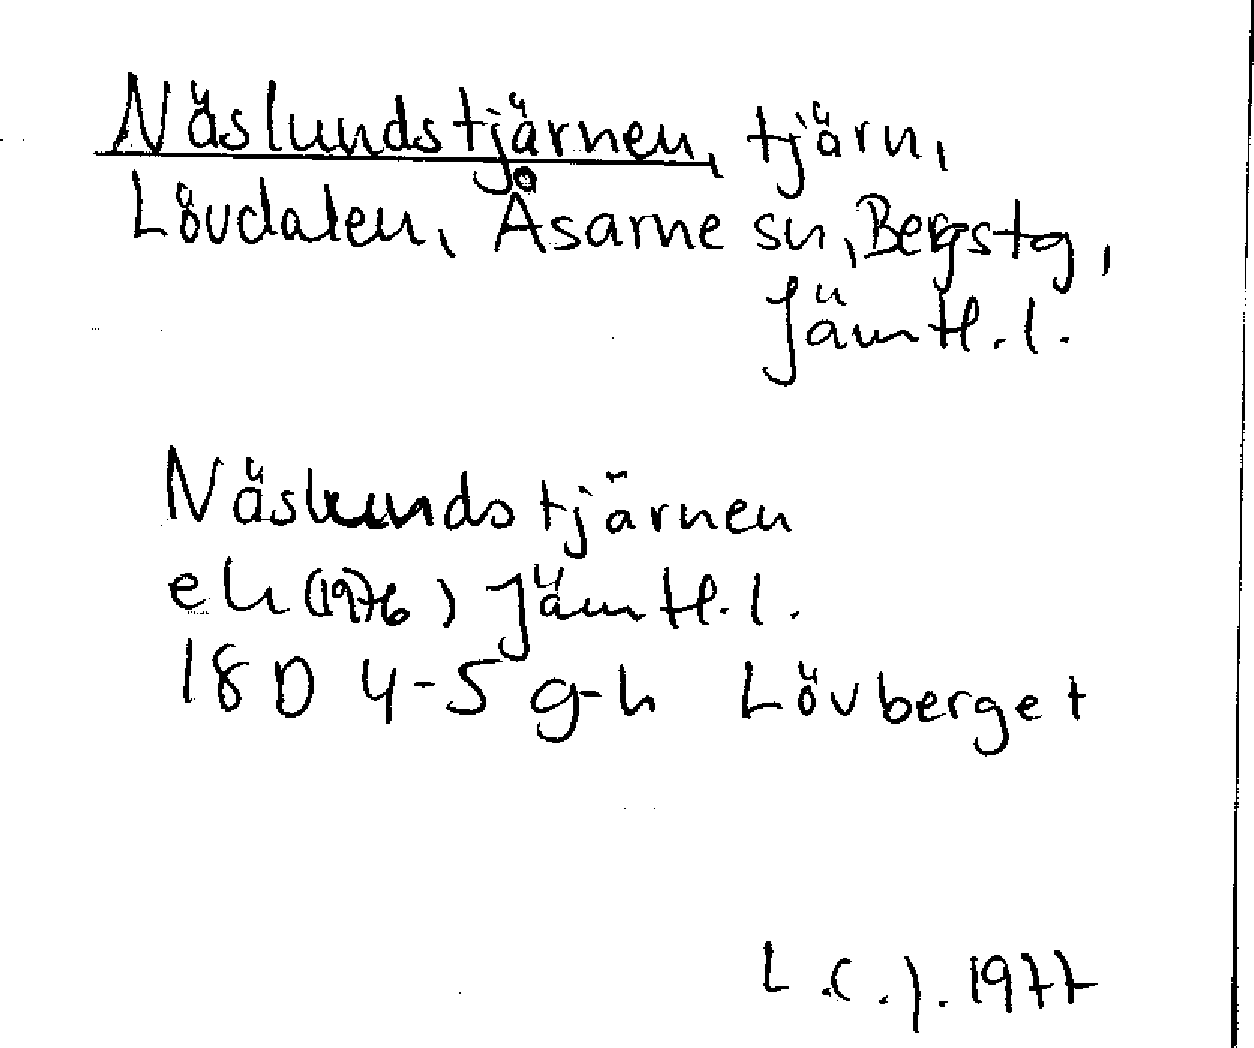 Näslundstjärnen, tjärn,
Lövdalen, Åsarne sn, Bergstg,
Jämtl. l.
Näslundstjärnen
ek (1976) Jämtl. l.
18 D 4-5 g-h Lövberget
L.C.J. 1977